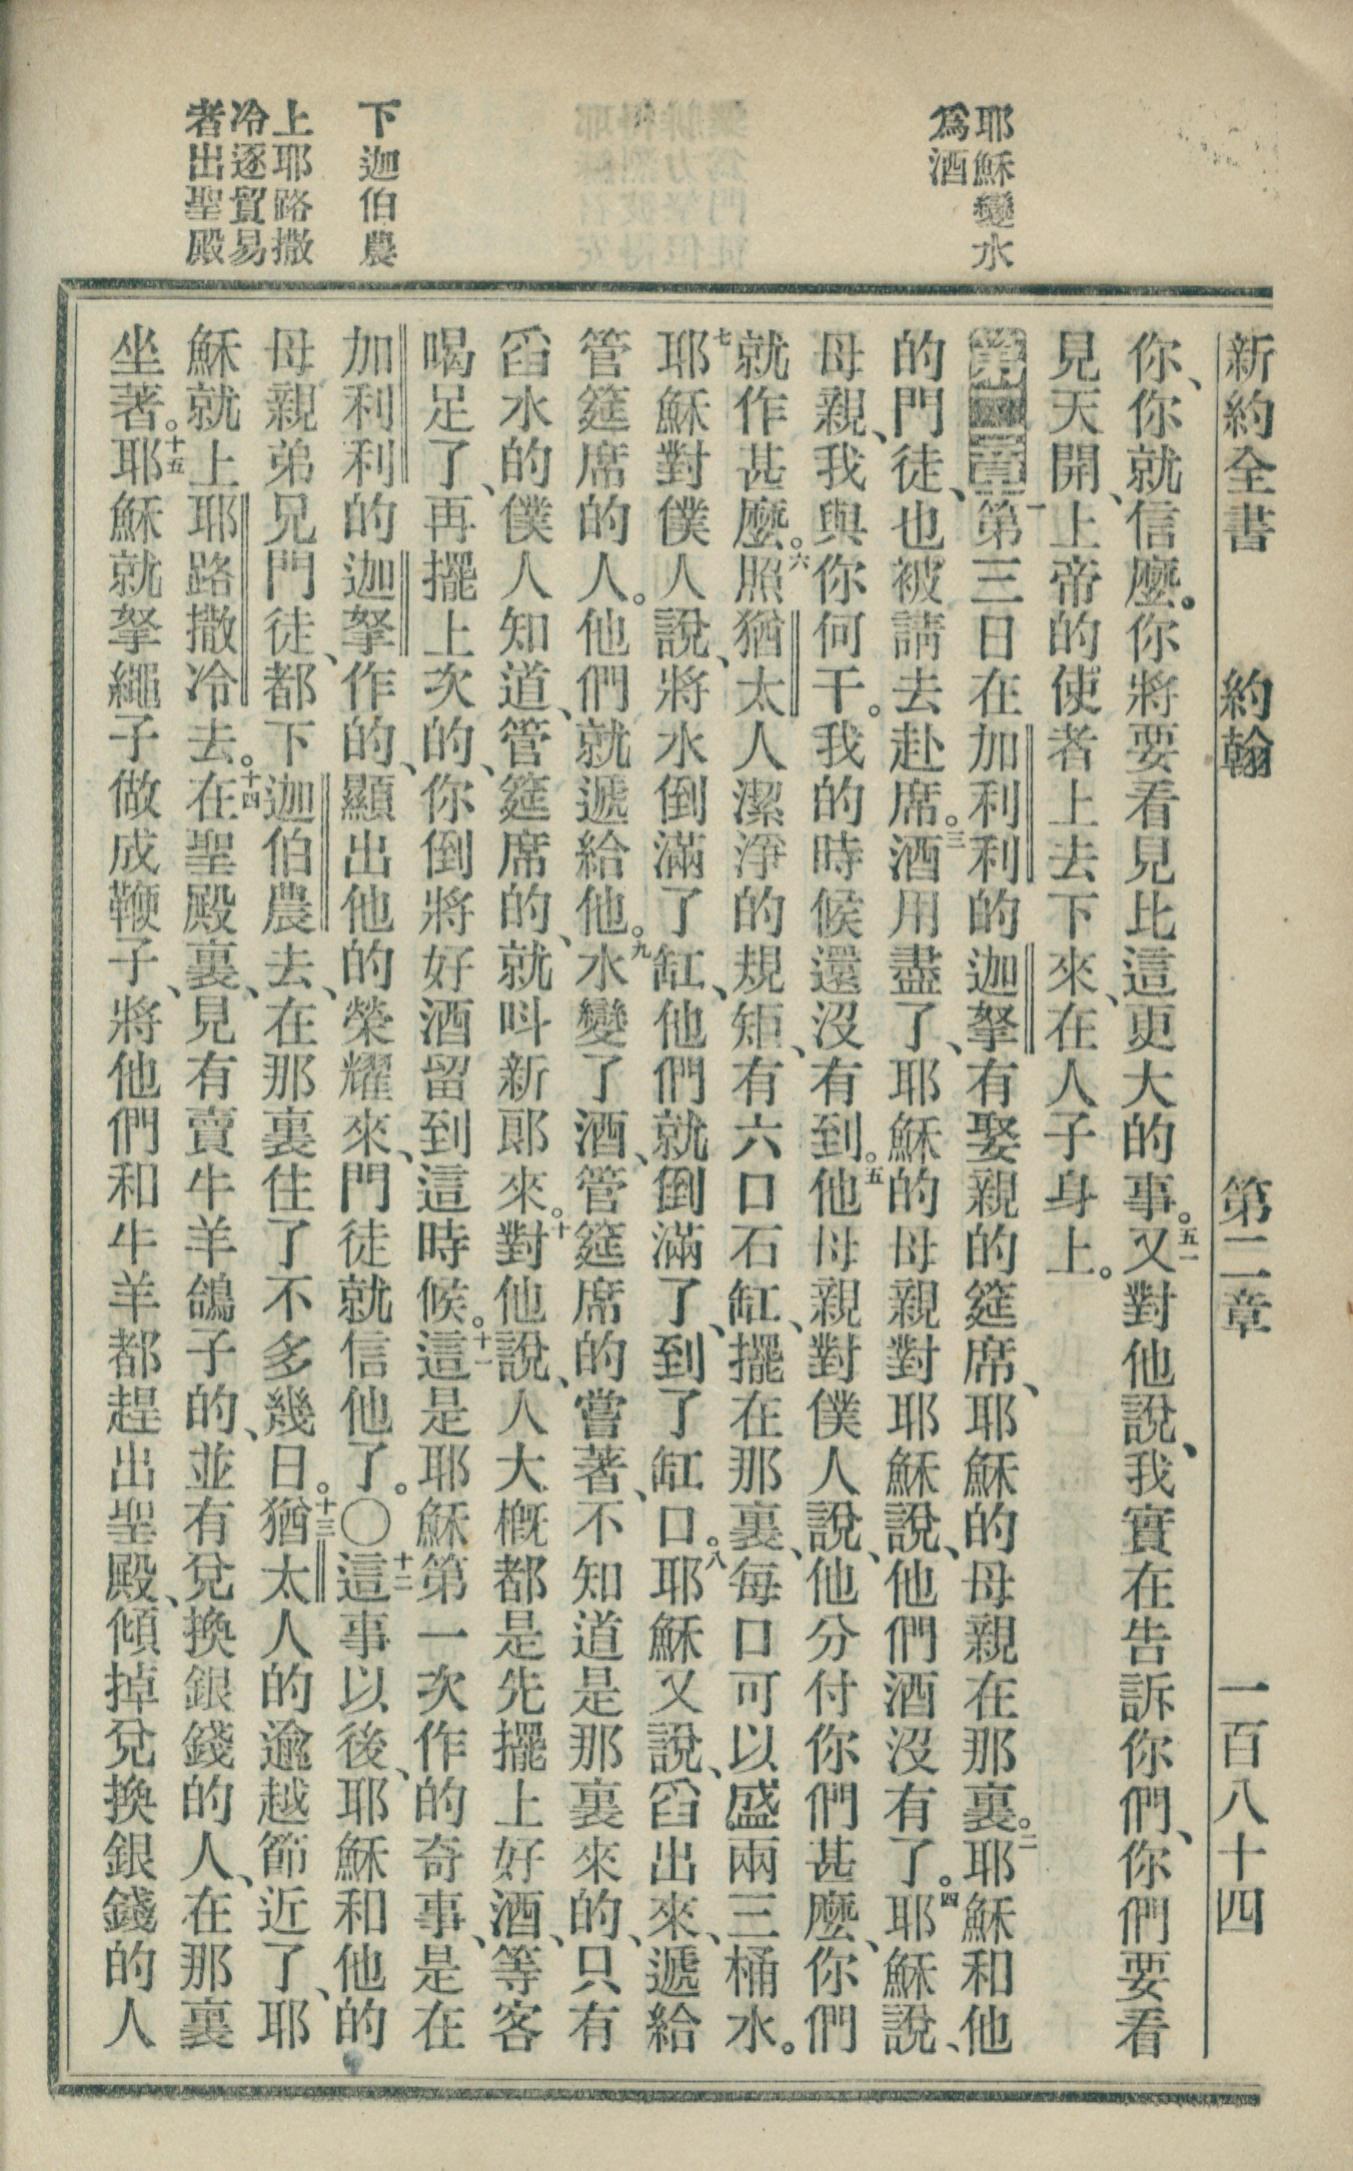 新約全書 約翰 第二章 一百八十四
耶穌變水
爲酒
下迦伯農
上耶路撒
冷逐貿易
者出聖殿
你、你就信麼。你將要看見比這更大的事。五一又對他說、我實在告訴你們、你們要看
見天開、上帝的使者上去下來、在人子身上。
第二章一第三日在加利利的迦拏有娶親的筵席、耶穌的母親在那裏。二耶穌和他
的門徒、也被請去赴席。三酒用盡了、耶穌的母親對耶穌說、他們酒沒有了。四耶穌說、
母親、我與你何干。我的時候還沒有到。五他母親對僕人說、他分付你們甚麼、你們
就作甚麼。六照猶太人潔淨的規矩、有六口石缸、擺在那裏、每口可以盛兩三桶水。
七耶穌對僕人說、將水倒滿了缸、他們就倒滿了、到了缸口。八耶穌又說、舀出來、遞給
管筵席的人。他們就遞給他。九水變了酒、管筵席的嘗著、不知道是那裏來的、只有
舀水的僕人知道、管筵席的、就呌新郎來。十對他說、人大概都是先擺上好酒、等客
喝足了、再擺上次的、你倒將好酒留到這時候。十一這是耶穌第一次作的奇事、是在
加利利的迦拏作的、顯出他的榮耀來、門徒就信他了。〇十二這事以後、耶穌和他的
母親弟兄門徒、都下迦伯農去、在那裏住了不多幾日。十三猶太人的逾越節近了、耶
穌就上耶路撒冷去。十四在聖殿裏、見有賣牛羊鴿子的、並有兌換銀錢的人、在那裏
坐著。十五耶穌就拏繩子做成鞭子、將他們和牛羊都趕出聖殿、傾掉兌換銀錢的人